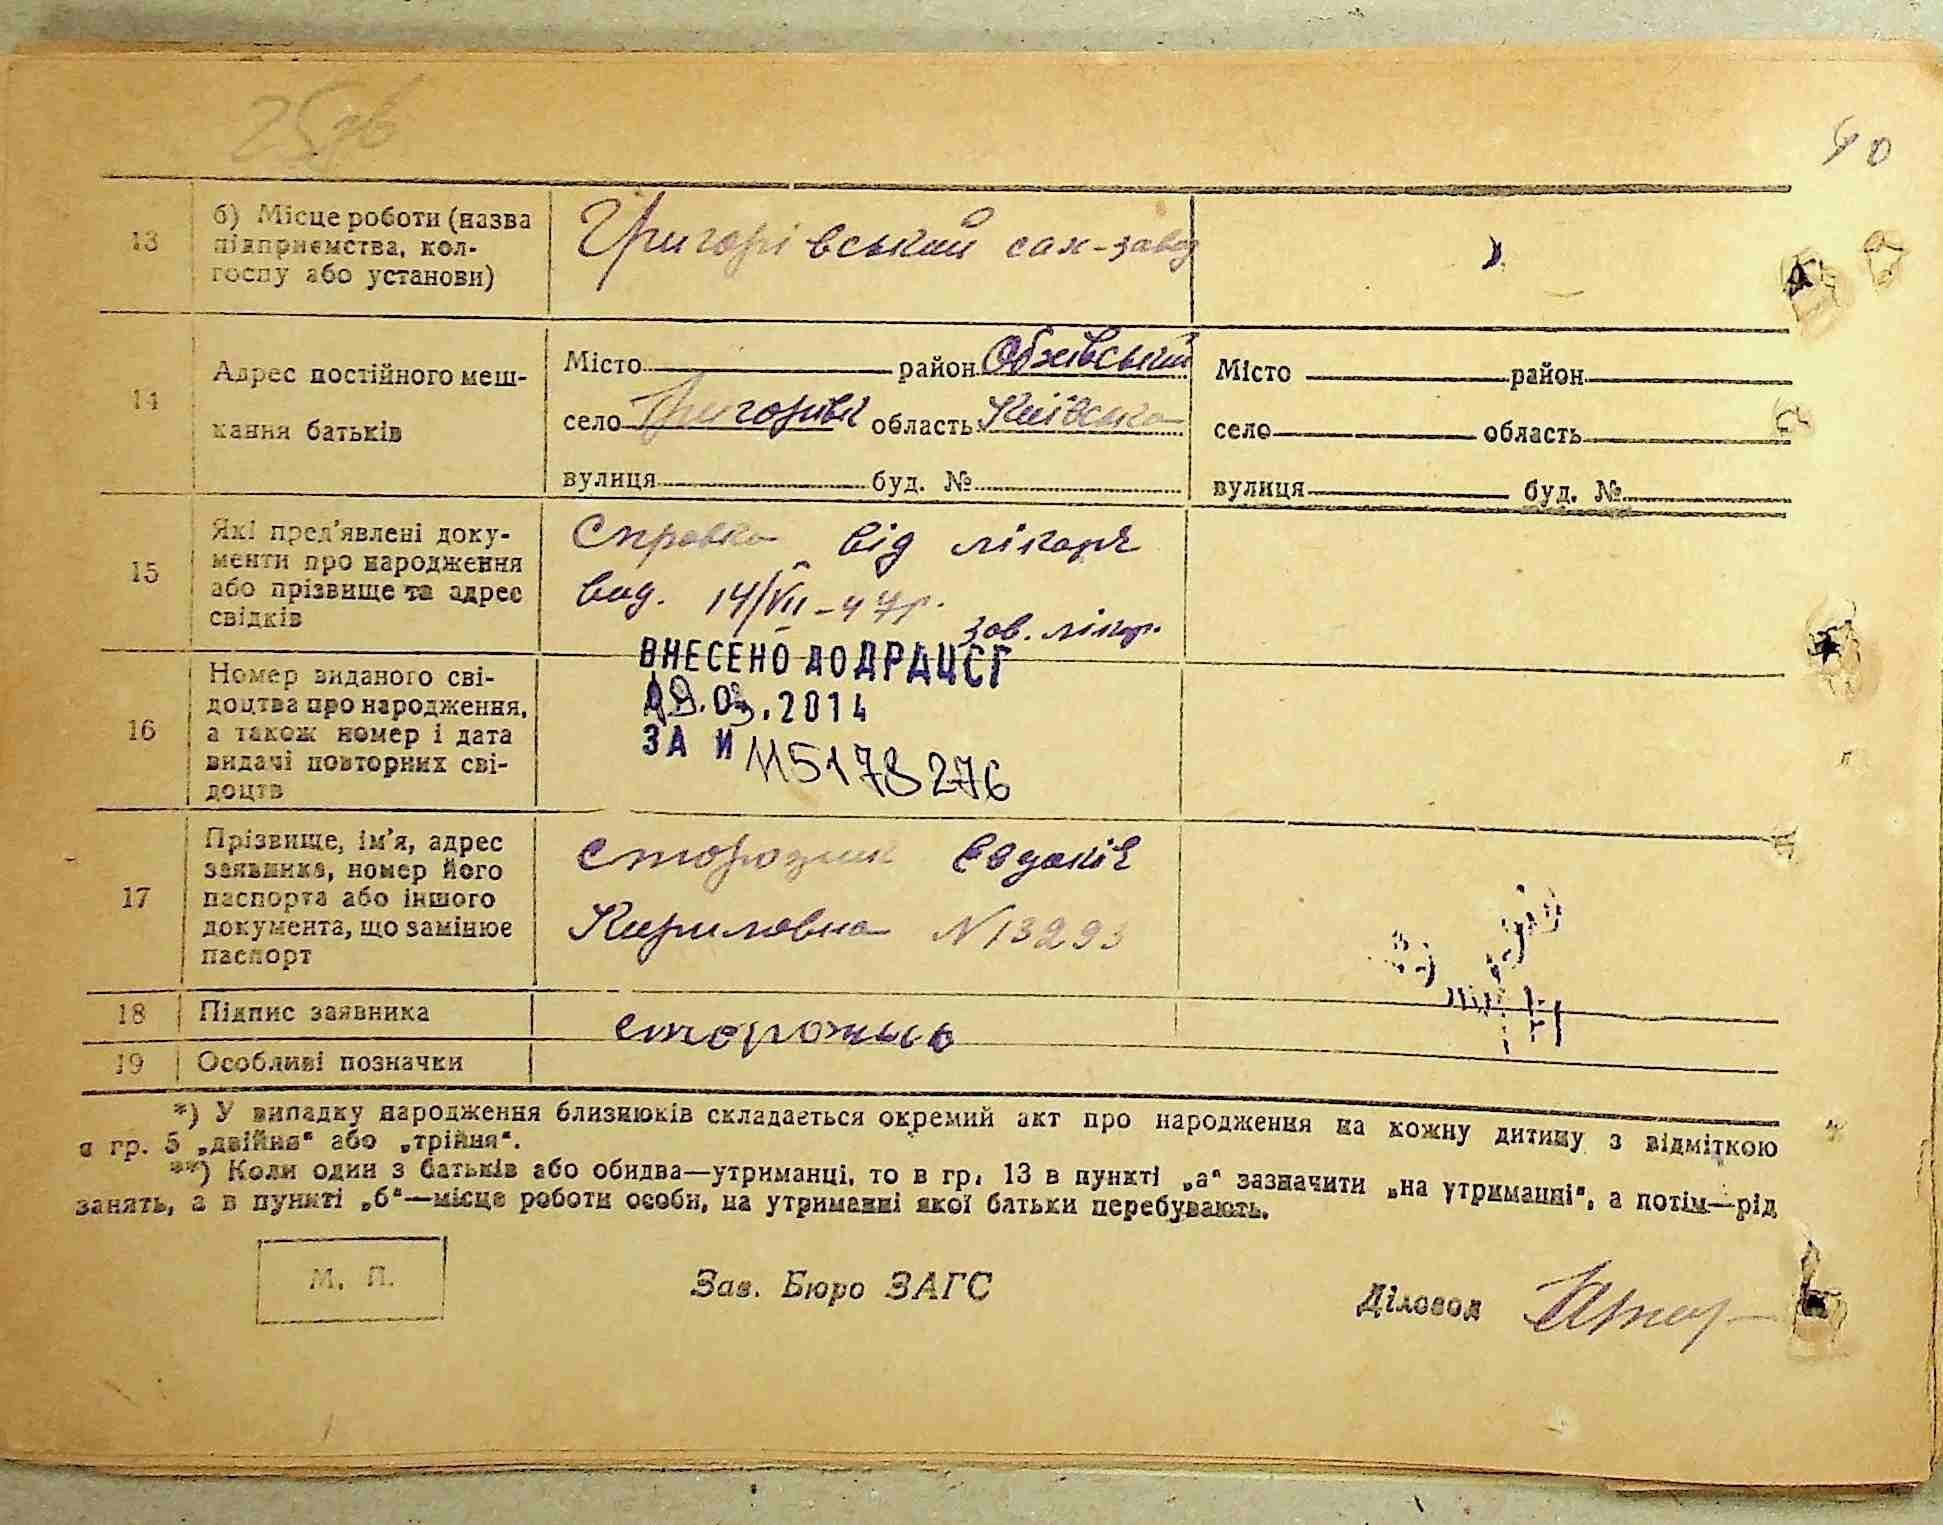 40
13
б) Місце роботи (назва
підприємства, кол-
госпу або установи)
Григорівський сах-завод
14
Адрес постійного меш-
кання батьків
Місто район Обхівський
село Григорівк область Київська
вулиця буд. №
Місто район
село область
вулиця буд. №
15
Які пред'явлені доку-
менти про народження
або прізвище та адрес
свідків
Справка від лікаря
вид. 14/VII-47р.
зав. лікар.
16
Номер виданого сві-
доцтва про народження,
а також номер і дата
видачі повторних сві-
доцтв
ВНЕСЕНО ДО ДРАЦСГ
03.2014
ЗА И 115178276
17
Прізвище, ім'я, адрес
заявника, номер його
паспорта або іншого
документа, що замінює
паспорт
Сторожик Евдокія
Кириловна N 13293
18
Підпис заявника
19
Особливі позначки
*) У випадку народження близнюків складається окремий акт про народження на кожну дитину з відміткою
в гр. 5 „двійня“ або „трійня“.
**) Коли один з батьків або обидва—утриманці, то в гр. 13 в пункті „а“ зазначити „на утриманні“, а потім—рід
занять, а в пункті „б“—місце роботи особи, на утриманні якої батьки перебувають.
М. П.
Зав. Бюро ЗАГС
Діловод